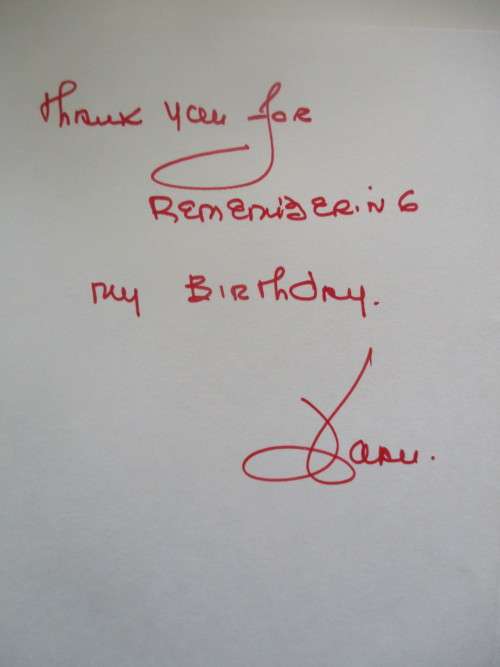 Thank you for
REMEMBERING
my Birthday.